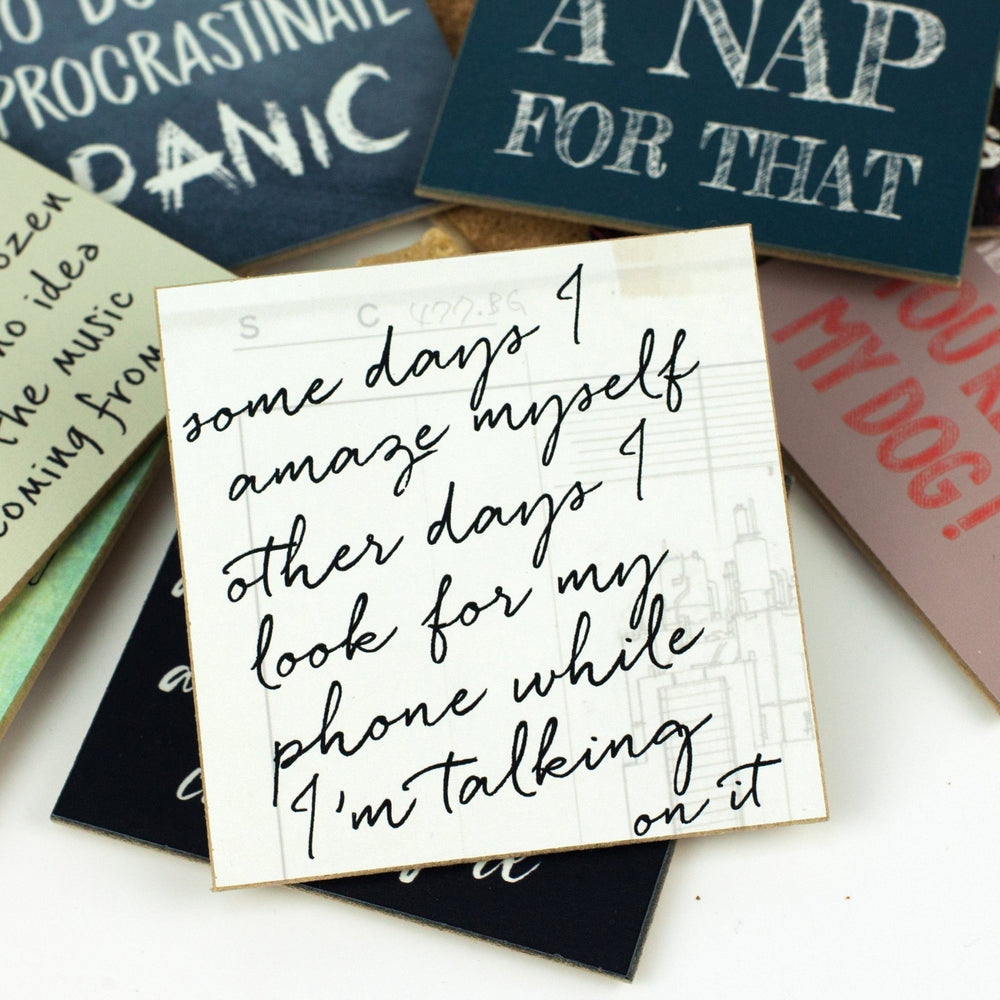 TO DO
PROCRASTINATE
PANIC
A NAP
FOR THAT
ozen
no idea
the music
coming from
YOU'RE
MY DOG!
S C 477.BG
some days I
amaze myself
other days I
look for my
phone while
I'm talking
on it